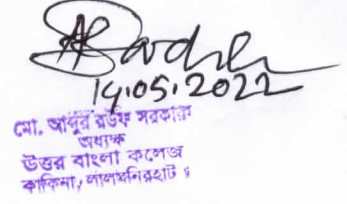 14.05.2022
মো. আব্দুর রউফ সরকার
অধ্যক্ষ
উত্তর বাংলা কলেজ
কাকিনা, লালমনিরহাট ।